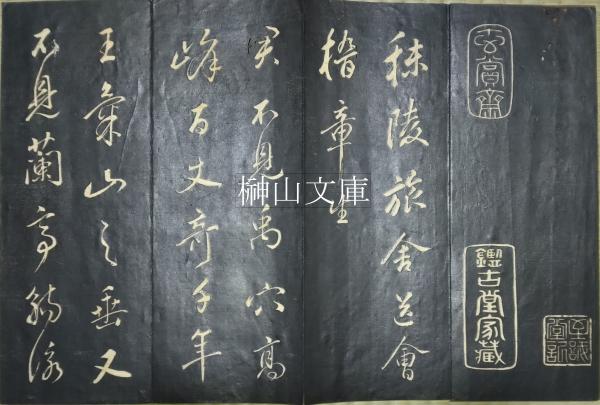 玄賞齋
鑑古堂家藏
秣陵旅舍送會
稽章生
君不見禹穴高
峰百丈奇千年
王氣山之垂又
不見蘭亭觴詠
榊山文庫